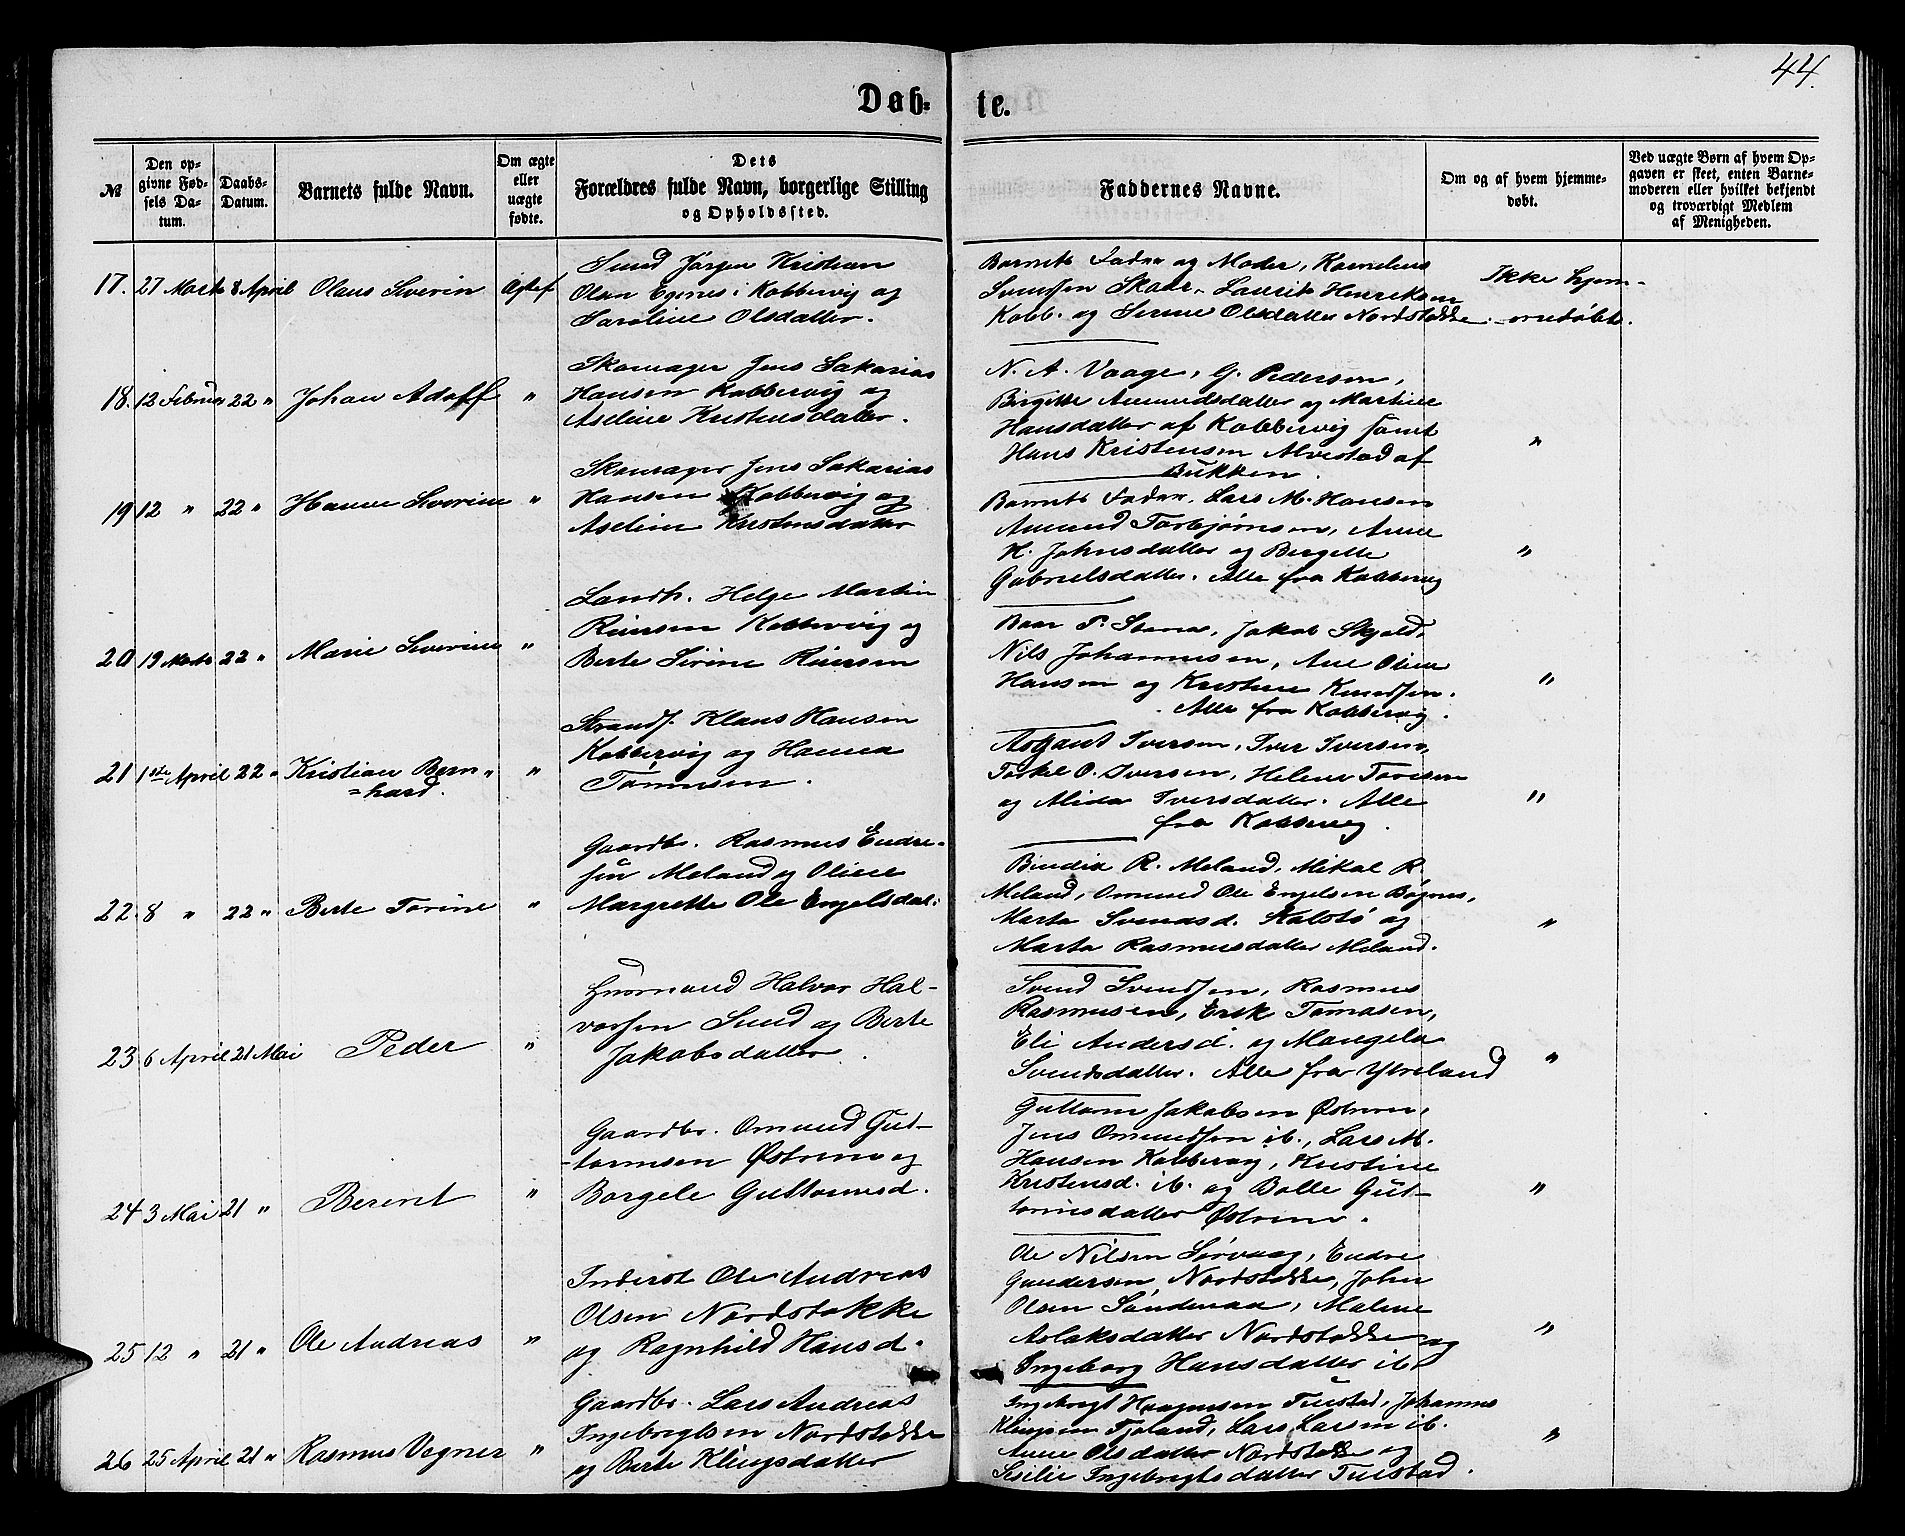 44.
Døb- te.
№
Den opgivne Fødsels Datum.
Daabs-Datum.
Barnets fulde Navn.
Om ægte eller uægte fødte.
Dets Forældres fulde Navn, borgerlige Stilling og Opholdssted.
Faddernes Navne.
Om og af hvem hjemmedøbt.
Ved uægte Børn af hvem Opgaven er skeet, enten Barnemoderen eller hvilket bekjendt og troværdigt Medlem af Menigheden.
17. 27 Marts 8 April Olaus Severin Ægtef
Smed Jørgen Kristian
Olsen Egenes i Kobbervig og
Karoline Olsdatter.
Barnets Fader og Moder, Kornelius
Svendsen Skaar, Laurits Henriksen
Kobb. og Serine Olsdatter Nordstokke.
Ikke hjem-
medøbt.
18. 12 Februar 22 " Johan Adolf "
Skomager Jens Sakarias
Hansen Kobbervig og
Aseline Kristensdatter.
N. A. Vaage, G. Pedersen,
Birgitte Amundsdatter og Martine
Hansdatter af Kobbervig samt
Hans Kristensen Alvestad af
Bukken.
"
19 12 " 22 " Hanne Severine "
Skomager Jens Sakarias
Hansen Kobbervig og
Aseline Kristensdatter
Barnets Fader, Lars M. Hansen
Amund Torbjørnsen, Anne
H. Johnsdatter og Bergette
Gabrielsdatter. Alle fra Kobbervig
"
20 19 Marts 22 " Marie Severine "
Landh. Helge Martin
Riversen Kobbervig og
Berte Sirine Riversen
Baar P. Stene, Jakob Skjold,
Nils Johannesen, Ane Oline
Hansen og Kristine Knudsen.
Alle fra Kobbervig.
"
21 1ste April 22 " Kristian Bern-
hard. "
Strands. Klaus Hansen
Kobbervig og Hanna
Tønnesen.
Asgaut Iversen, Iver Iversen,
Torkel O. Iversen, Helene Toresen
og Alida Iversdatter. Alle
fra Kobbervig.
"
22. 8 " 22 " Berte Torine "
Gaardbr. Rasmus Endre-
sen Meland og Oline
Margrette Ole Engelsdat.
Bendix R. Meland, Mikal R.
Meland, Omund Ole Engelsen Bøgnes,
Marta Svendsd. Kalstø og
Marta Rasmusdatter Meland.
"
23 6 April 21 Mai Peder "
Huusmand Halvor Hal-
vorsen Sund og Berte
Jakobsdatter.
Svend Svendsen, Rasmus
Rasmusen, Erik Tomasen,
Eli Andersd. og Mangela
Svendsdatter. Alle fra Ytreland
"
24 3 Mai 21 " Berent "
Gaardbr. Omund Gut-
tormsen Østrem og
Borgele Guttormsd.
Guttorm Jakobsen Østrem,
Jens Omundsen ib., Lars M.
Hansen Kobbervig, Kristine
Kristensd. ib. og Bolle Gut-
tormsdatter Østrem.
"
25 12 " 21 " Ole Andreas "
Inderst Ole Andreas
Olsen Nordstokke
og Ragnhild Hansd.
Ole Nilsen Sørvaag, Endre
Gundersen Nordstokke, John
Olsen Sandenaa, Malene
Aslaksdatter Nordstokke og
Ingeborg Hansdatter ib.
"
26 25 April 21 " Rasmus Vegner "
Gaardbr. Lars Andreas
Ingebregtsen Nordstokke
og Berte Klingsdatter
Ingebregt Haagensen Tuestad, Johannes
Klingsen Fjeland, Lars Larsen ib.
Anne Olsdatter Nordstokke og
Sesilie Ingebregtsdatter Tuestad.
"